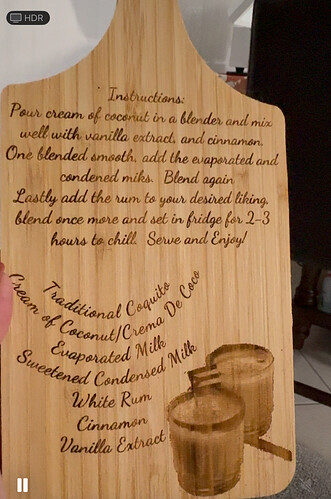 HDR
Instructions:
Pour cream of coconut in a blender and mix
well with vanilla extract, and cinnamon.
One blended smooth, add the evaporated and
condened miks. Blend again
Lastly add the rum to your desired liking,
blend once more and set in fridge for 2-3
hours to chill. Serve and Enjoy!
Traditional Coquito
Cream of Coconut/Crema De Coco
Evaporated Milk
Sweetened Condensed Milk
White Rum
Cinnamon
Vanilla Extract